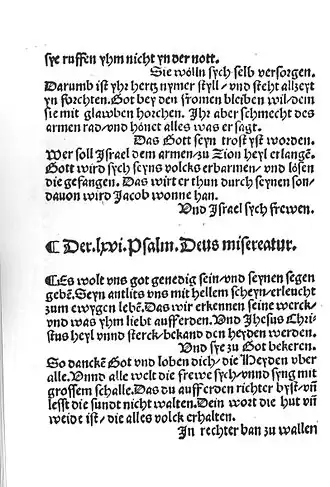 sye ruffen yhm nicht yn der nott.
Sie wölln sych selb versorgen.
Darumb ist yhr hertz nymer styll/ und steht allzeyt
yn forchten. Got bey den fromen bleiben wil/dem
sie mit glawben horchen. Ihr aber schmecht des
armen rad/und hönet alles was er sagt.
Das Gott seyn trost yst worden.
Wer soll Israel dem armen/zu Zion heyl erlangē.
Gott wird sych seyns volcks erbarmen/ und lösen
die gefangen. Das wirt er thun durch seynen son/
dauon wird Jacob wonne han.
Und Israel sych frewen.
¶ Der.lxvi.Psalm.Deus misereatur.
¶Es wolt uns got genedig sein/und seynen segen
gebē. Seyn antlits uns mit hellem scheyn/erleucht
zum ewygen lebē. Das wir erkennen seine werck/
und was yhm liebt auff erden. Und Jhesus Chri-
stus heyl unnd sterck/bekand den heyden werden.
Und sye zu Got bekeren.
So danckē Got und loben dich/ die Heyden uber
alle. Unnd alle welt die frewe sych/unnd syng mit
grossem schalle. Das du auff erden richter byst/uñ
lesst die sundt nicht walten. Dein wort die hut uñ
weidt ist/ die alles volck erhalten.
In rechter ban zu wallen